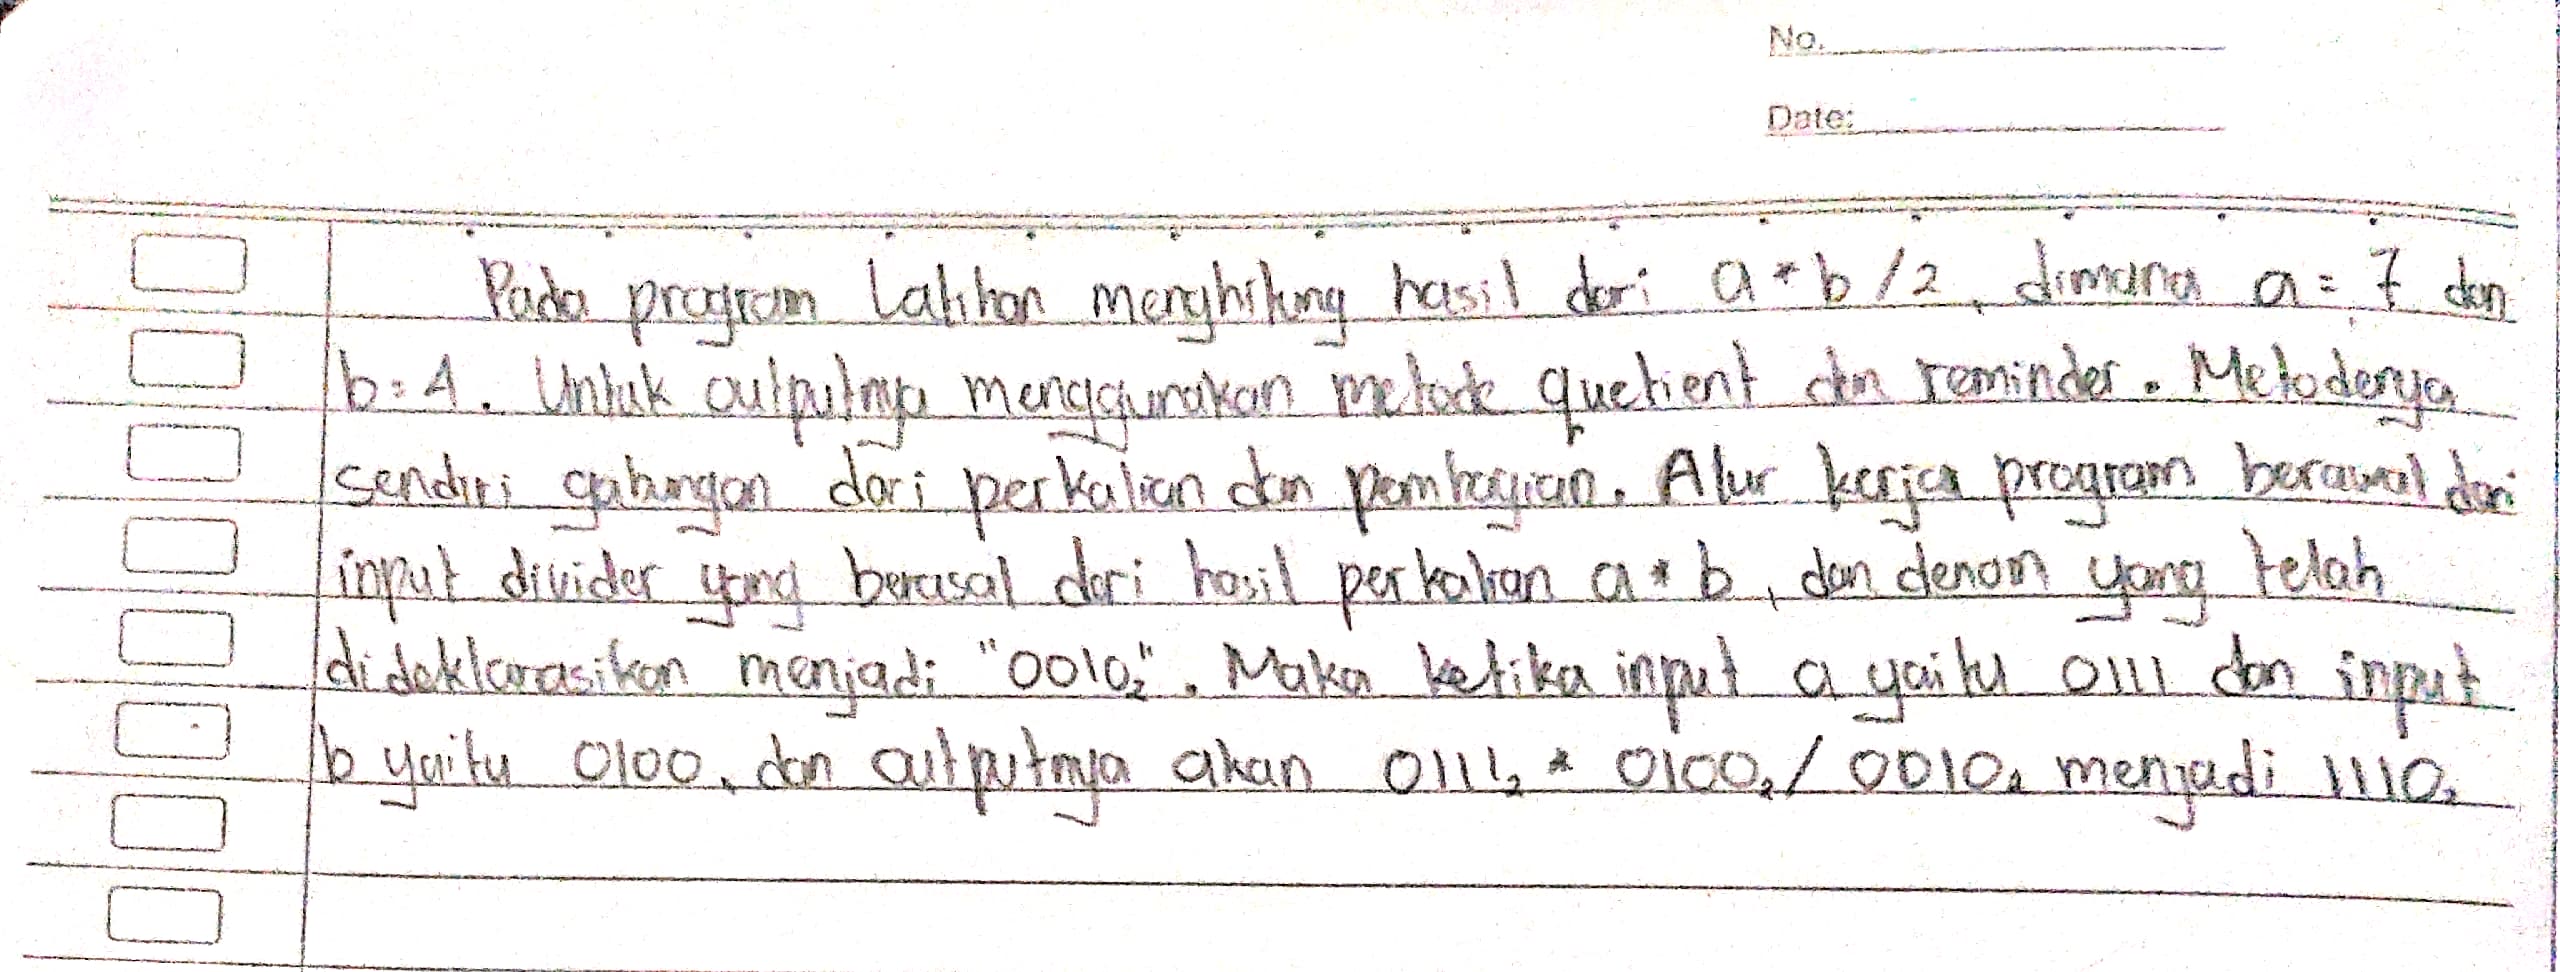 No.
Date:
Pada program Latihan menghitung hasil dari a * b / 2, dimana a = 7 dan
b = 4. Untuk outputnya menggunakan metode quetient dan reminder. Metodenya
sendiri gabungan dari perkalian dan pembagian. Alur kerja program berawal dari
input divider yang berasal dari hasil perkalian a * b, dan denom yang telah
dideklarasikan menjadi "0010₂". Maka ketika input a yaitu 0111 dan input
b yaitu 0100, dan outputnya akan 0111₂ * 0100₂ / 0010₂ menjadi 1110₂